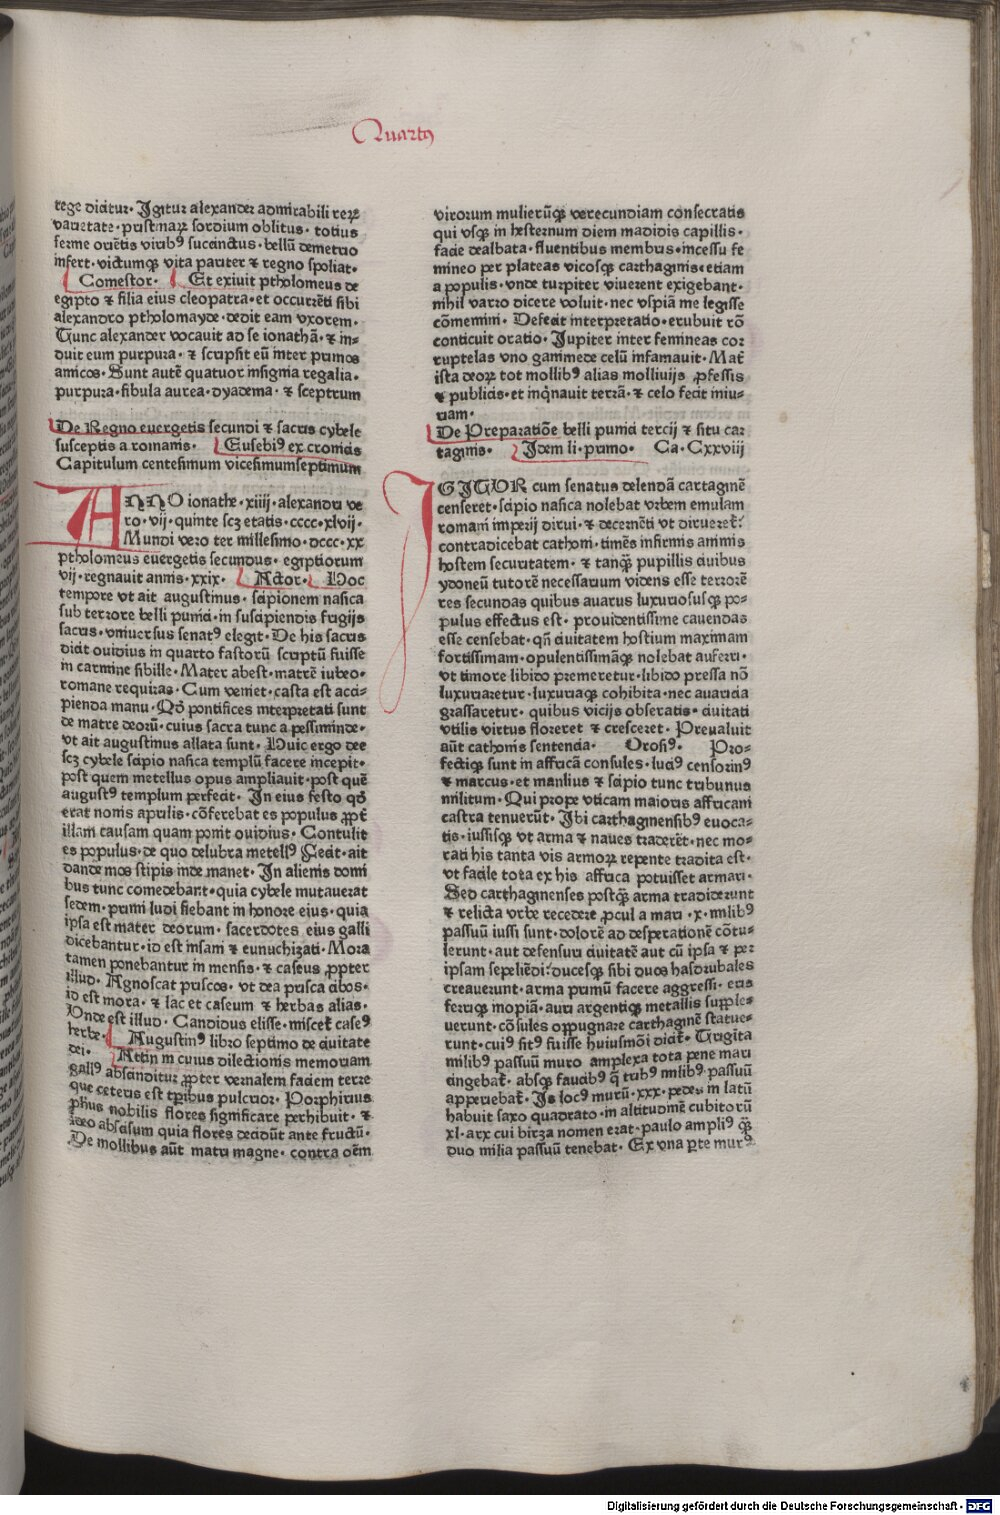 Quartꝰ
rege dicitur· Igitur alexander admirabili reꝝ
varietate· pristinaꝝ sordium oblitus· totius
ferme oriētis viribꝰ succinctus· bellū demetrio
infert· victumqꝫ vita pariter ⁊ regno spoliat·
Comestor· Et exiuit ptholomeus de
egipto ⁊ filia eius cleopatra· et occurrēti sibi
alexandro ptholomayde· dedit eam vxorem·
Tunc alexander vocauit ad se ionathā· ⁊ in-
duit eum purpura· ⁊ scripsit eū inter primos
amicos· Sunt autē quatuor insignia regalia·
purpura· fibula aurea· dyadema· ⁊ sceptrum
De Regno euergetis secundi ⁊ sacris cybele
susceptis a romanis· Eusebiꝰ ex cronicis
Capitulum centesimum vicesimumseptimum
ANNO ionathe· xiiij· alexandri ve
ro· vij· quinte scꝫ etatis· cccc· xlvij·
Mundi vero ter millesimo· dccc· xx
ptholomeus euergetis secundus· egiptiorum
vij· regnauit annis· xxix· Actor· Hoc
tempore vt ait augustinus· scipionem nasica
sub terrore belli punici· in suscipiendis frigijs
sacris· vniuersus senatꝰ elegit· De his sacris
dicit ouidius in quarto fastorū scriptū fuisse
in carmine sibille· Mater abest· matrē iubeo·
romane requiras· Cum veniet· casta est acci-
pienda manu· Qđ pontifices interpretati sunt
de matre deorū· cuius sacra tunc a pessiminde·
vt ait augustinus allata sunt· Huic ergo dee
scꝫ cybele scipio nasica templū facere incepit·
post quem metellus opus ampliauit· post quē
augustꝰ templum perfecit· In eius festo qđ
erat nonis aprilis· cōferebat es populus ꝓpt̄
illam causam quam ponit ouidius· Contulit
es populus· de quo delubra metellꝰ Fecit· ait
dande mos stipis inde manet· In alienis domi
bus tunc comedebant· quia cybele mutauerat
sedem· primi ludi fiebant in honore eius· quia
ipsa est mater deorum· sacerdotes eius galli
dicebantur· id est insani ⁊ eunuchizati· Mora
tamen ponebantur in mensis· ⁊ caseus ꝓpter
illud· Agnoscat priscos· vt dea prisca cibos·
id est mora· ⁊ lac et caseum ⁊ herbas alias·
Vnde est illud· Candidus elisse· miscet̄ caseꝰ
herbe· Augustinꝰ libro septimo de ciuitate
dei· Attin in cuius dilectionis memoriam
gallꝰ absinditur ꝓpter vernalem faciem terre
que ceteris est tꝑibus pulcrior· Porphirius
phūs nobilis flores significare perhibuit· ⁊
ideo abscisum quia flores decidūt ante fructū·
De mollibus aūt matri magne· contra oēm
virorum mulierūqꝫ verecundiam consecratis
qui vsqꝫ in hesternum diem madidis capillis·
facie dealbata· fluentibus membris· incessu fe
mineo per plateas vicosqꝫ carthaginis· etiam
a populis· vnde turpiter viuerent exigebant·
nihil varro dicere voluit· nec vspiā me legisse
cōmemini· Defecit interpretatio· erubuit rō
conticuit oratio· Iupiter inter femineas cor
ruptelas vno ganimede celū infamauit· Mat̄
ista deoꝝ tot mollibꝰ alias molliuijs ꝓfessis
⁊ publicis· et inqͥnauit terrā· ⁊ celo fecit iniu-
riam·
De Preparatiōe belli punici tercij ⁊ situ car
taginis· Idem li· primo· Ca· Cxxviij
IGITUR cum senatus delendā cartaginē
censeret· scipio nasica nolebat vrbem emulam
romani imperij dirui· ⁊ decernēti vt dirueret̄:
contradicebat cathoni· timēs infirmis animis
hostem securitatem· ⁊ tanqꝫ pupillis ciuibus
ydoneū tutorē necessarium videns esse terrorē
res secundas quibus auarus luxuriosusqꝫ po-
pulus effectus est· prouidentissime cauendas
esse censebat· qn̄ ciuitatem hostium maximam
fortissimam· opulentissimāqꝫ nolebat auferri·
vt timore libido premeretur· libido pressa nō
luxuriaretur· luxuriaqꝫ cohibita· nec auaricia
grassaretur· quibus vicijs obseratis· ciuitati
vtilis virtus floreret ⁊ cresceret· Preualuit
aūt cathonis sentencia· Orosiꝰ· Pro-
fectiqꝫ sunt in affricā consules· luciꝰ censorinꝰ
⁊ marcus· et manlius ⁊ scipio tunc tribunus
militum· Qui prope vticam maioris affricani
castra tenuerūt· Ibi carthaginensibꝰ euoca-
tis· iussisqꝫ vt arma ⁊ naues traderēt· nec mo-
rati his tanta vis armoꝝ repente tradita est·
vt facile tota ex his affrica potuisset armari·
Sed carthaginenses postqꝫ arma tradiderunt
⁊ relicta vrbe recedere ꝓcul a mari ·x· milibꝰ
passuū iussi sunt· dolorē ad desperationē cōtu-
lerunt· aut defensuri ciuitatē aut cū ipsa ⁊ per
ipsam sepeliēdi: ducesqꝫ sibi duos hasdrubales
creauerunt· arma primū facere aggressi· eris
ferriqꝫ inopiā· auri argentiqꝫ metallis supple-
uerunt· cōsules oppugnare carthaginē statue-
runt· cuiꝰ sitꝰ fuisse huiusmōi dicit̄· Trigīta
milibꝰ passuū muro amplexa tota pene mari
cingebat̄· absqꝫ faucibꝰ q̄ tribꝰ milibꝰ passuū
apperiebat̄· Is locꝰ murū· xxx· pedes in latū
habuit saxo quadrato· in altitudinē cubitorū
xl· arx cui birza nomen erat· paulo ampliꝰ qꝫ
duo milia passuū tenebat· Ex vna ꝑte murꝰ
Digitalisierung gefördert durch die Deutsche Forschungsgemeinschaft - DFG